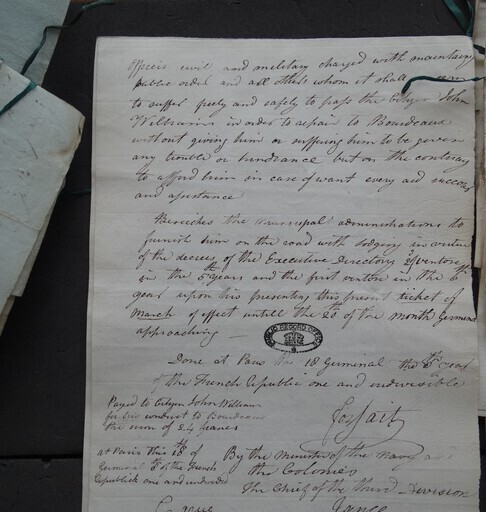 officers civil and military charged with maintaing
public order and all others whom it shall
to suffer freely and safely to pass the Citizen John
Williams in order to repair to Bourdeaux
without giving him or suffering him to be given
any trouble or hindrance but on the contrary
to afford him in case of want every aid succour
and assistance
the municipal administrations to
furnish him on the road with lodging in virtue
of the decrees of the Executive Directory 21 ventose
in the 5th years and the first ventose in the 6th
year upon his presenting this present ticket of
March of effect untill the 28th of the month Germinal
approaching
Done at Paris the 18 Germinal the 6th year
of the French Republic one and undivisible
Payed to Citizen John William
for his conduct to Bourdeaux
the sum of 24 francs
at Paris this 18th of
Germinal 6th of the French
Republick one and undivided
By the Minister of the Navy and
the Colonies
the Chief of the third Division